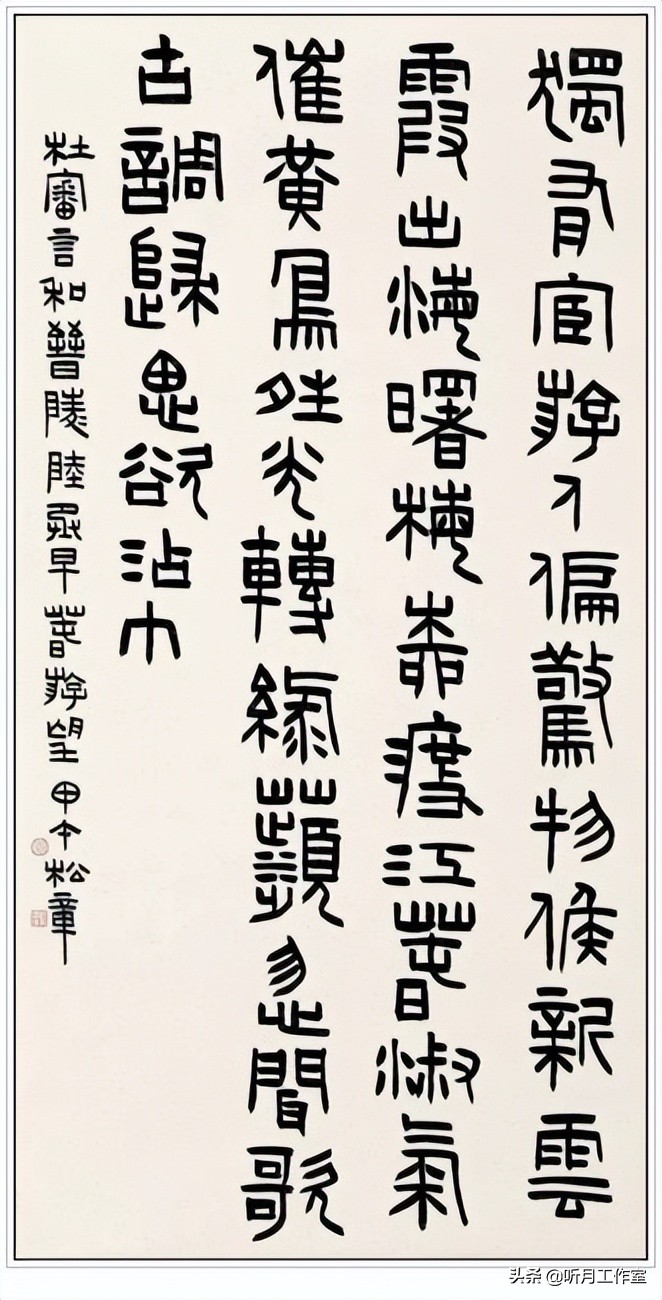 獨有宦游人偏驚物候新雲
霞出海曙梅柳渡江春淑氣
催黃鳥晴光轉綠蘋忽聞歌
古調歸思欲沾巾
杜審言和晉陵陸丞早春游望 甲午松章
头条 @听月工作室